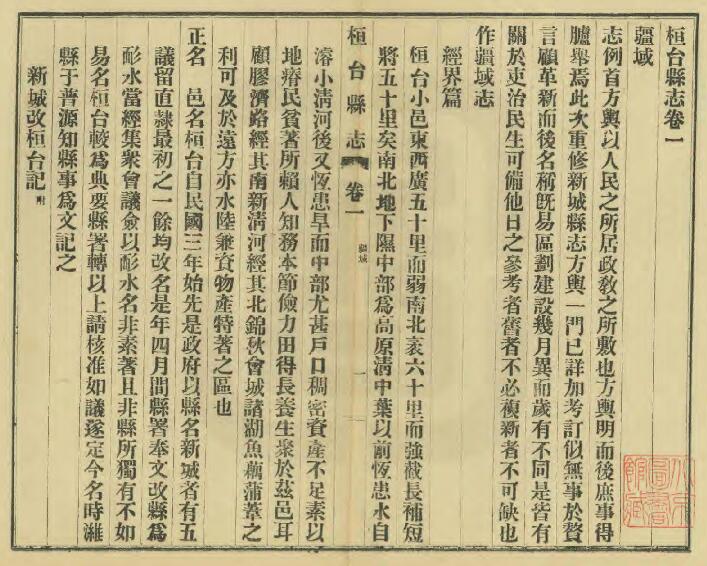 桓台縣志卷一
疆域
志例首方輿以人民之所居政敎之所敷也方輿明而後庶事得
臚舉焉此次重修新城縣志方輿一門已詳加考訂似無事於贅
言顧革新而後名稱旣易區劃建設幾月異而歲有不同是皆有
關於吏治民生可備他日之參考者舊者不必複新者不可缺也
作疆域志
經界篇
桓台小邑東西廣五十里而弱南北袤六十里而強截長補短
將五十里矣南北地下隰中部爲高原淸中葉以前恆患水自
桓台縣志 卷一 疆域 一
濬小淸河後又恆患旱而中部尤甚戶口稠密資產不足素以
地瘠民貧著所賴人知務本節儉力田得長養生衆於茲邑耳
顧膠濟路經其南新淸河經其北錦秋會城諸湖魚藕蒲葦之
利可及於遠方亦水陸兼資物產特著之區也
正名 邑名桓台自民國三年始先是政府以縣名新城者有五
議留直隸最初之一餘均改名是年四月間縣署奉文改縣爲
耏水當經集衆會議僉以耏水名非素著且非縣所獨有不如
易名桓台較爲典要縣署轉以上請核准如議遂定今名時濰
縣于普源知縣事爲文記之
新城改桓台記 附